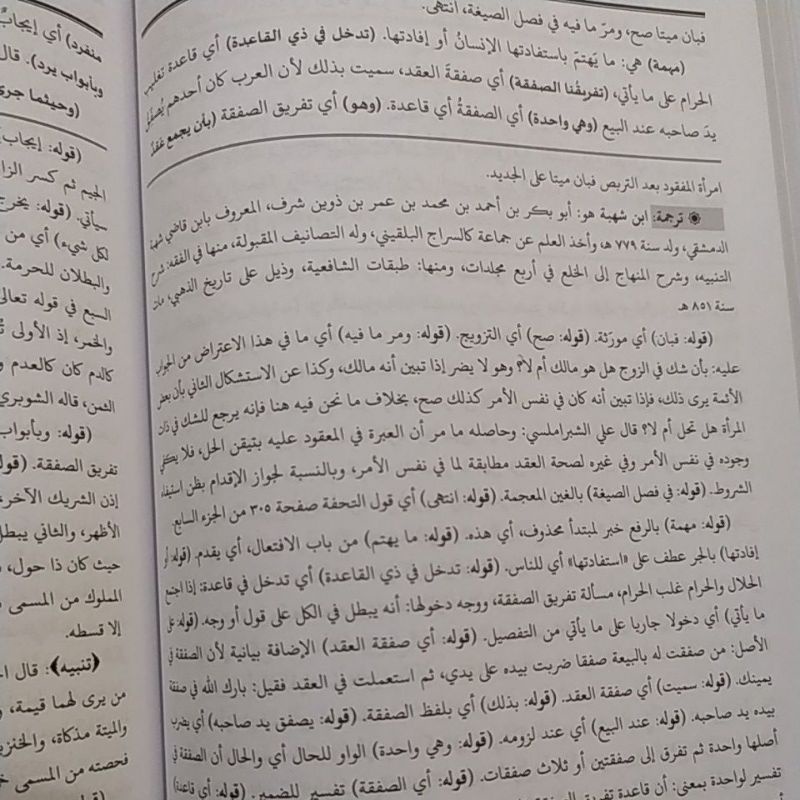 فبان ميتا صح، ومرّ ما فيه في فصل الصيغة، انتهى.
(مهمة) هي: ما يَهتمّ باستفادتها الإنسانُ أو إفادتها. (تدخل في ذي القاعدة) أي قاعدة تغليب
الحرام على ما يأتي، (تفريقُنا الصفقة) أي صفقةَ العقد، سميت بذلك لأن العرب كان أحدهم يُصفّق
يدَ صاحبه عند البيع (وهي واحدة) أي الصفقةُ أي قاعدة. (وهو) أي تفريق الصفقة (بأن يجمع عقدٌ
امرأة المفقود بعد التربص فبان ميتا على الجديد.
ترجمة: ابن شهبة هو: أبو بكر بن أحمد بن محمد بن عمر بن ذوين شرف، المعروف بابن قاضي شهبة
الدمشقي، ولد سنة ٧٧٩ هـ، وأخذ العلم عن جماعة كالسراج البلقيني، وله التصانيف المقبولة، منها في الفقه: شرح
التنبيه، وشرح المنهاج إلى الخلع في أربع مجلدات، ومنها: طبقات الشافعية، وذيل على تاريخ الذهبي، مات
سنة ٨٥١ هـ
(قوله: فبان) أي مورّثة. (قوله: صح) أي التزويج. (قوله: ومر ما فيه) أي ما في هذا الاعتراض من الجواب
عليه: بأن شك في الزوج هل هو مالك أم لا؟ وهو لا يضر إذا تبين أنه مالك، وكذا عن الاستشكال الثاني بأن بعض
الأئمة يرى ذلك، فإذا تبين أنه كان في نفس الأمر كذلك صح، بخلاف ما نحن فيه هنا فإنه يرجع للشك في ذات
المرأة هل تحل أم لا؟ قال علي الشبراملسي: وحاصله ما مر أن العبرة في المعقود عليه بتيقن الحل، فلا يكفي
وجوده في نفس الأمر وفي غيره لصحة العقد مطابقة لما في نفس الأمر، وبالنسبة لجواز الإقدام بظن استيفاء
الشروط. (قوله: في فصل الصيغة) بالغين المعجمة. (قوله: انتهى) أي قول التحفة صفحة ٣٠٥ من الجزء السابع.
(قوله: مهمة) بالرفع خبر لمبتدأ محذوف، أي هذه. (قوله: ما يهتم) من باب الافتعال، أي يقدم. (قوله: أو
إفادتها) بالجر عطف على «استفادتها» أي للناس. (قوله: تدخل في ذي القاعدة) أي تدخل في قاعدة: إذا اجتمع
الحلال والحرام غلب الحرام، مسألة تفريق الصفقة، ووجه دخولها: أنه يبطل في الكل على قول أو وجه. (قوله: على
ما يأتي) أي دخولا جاريا على ما يأتي من التفصيل. (قوله: أي صفقة العقد) الإضافة بيانية لأن الصفقة في
الأصل: من صفقت له بالبيعة صفقا ضربت بيده على يدي، ثم استعملت في العقد فقيل: بارك الله في صفقة
يمينك. (قوله: سميت) أي صفقة العقد. (قوله: بذلك) أي بلفظ الصفقة. (قوله: يصفق يد صاحبه) أي يضرب
بيده يد صاحبه. (قوله: عند البيع) أي عند لزومه. (قوله: وهي واحدة) الواو للحال أي والحال أن الصفقة في
أصلها واحدة ثم تفرق إلى صفقتين أو ثلاث صفقات. (قوله: أي الصفقة) تفسير للضمير. (قوله: أي قاعدة)
تفسير لواحدة بمعنى: أن قاعدة تفريق
منفرد) أي إيجابٌ
وبأبواب يرد). قال
(وحيثما جرى
(قوله: إيجاب)
الجيم ثم كسر الزا
سيأتي. (قوله: يخرج
لكل شيء) أي من
والبطلان للحرمة.
السبع في قوله تعالى
والخمر، إذ الأولى
كالدم كان كالعدم و
الثمن، قاله الشوبري
(قوله: وبأبواب
تفريق الصفقة. (قوله
إذن الشريك الآخر،
الأظهر، والثاني يبطل
حيث كان ذا حول،
المملوك من المسمى
إلا قسطه.
(تنبيه): قال
من يرى لهما قيمة، و
والميتة مذكاة، والخنزير
فحصته من المسمى